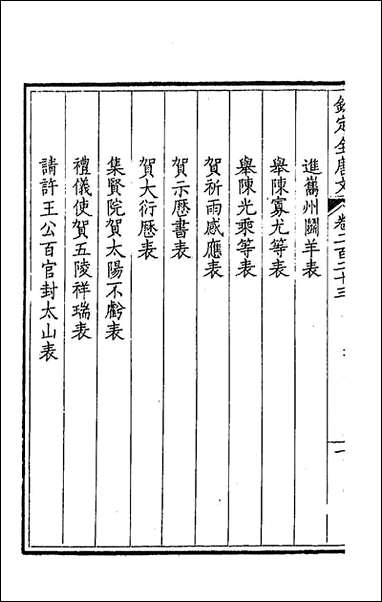 欽定全唐文 卷二百二十三 一
進巂州鬭羊表
舉陳寡尤等表
舉陳光乘等表
賀祈雨感應表
賀示歴書表
賀大衍歴表
集賢院賀太陽不虧表
禮儀使賀五陵祥瑞表
請許王公百官封太山表